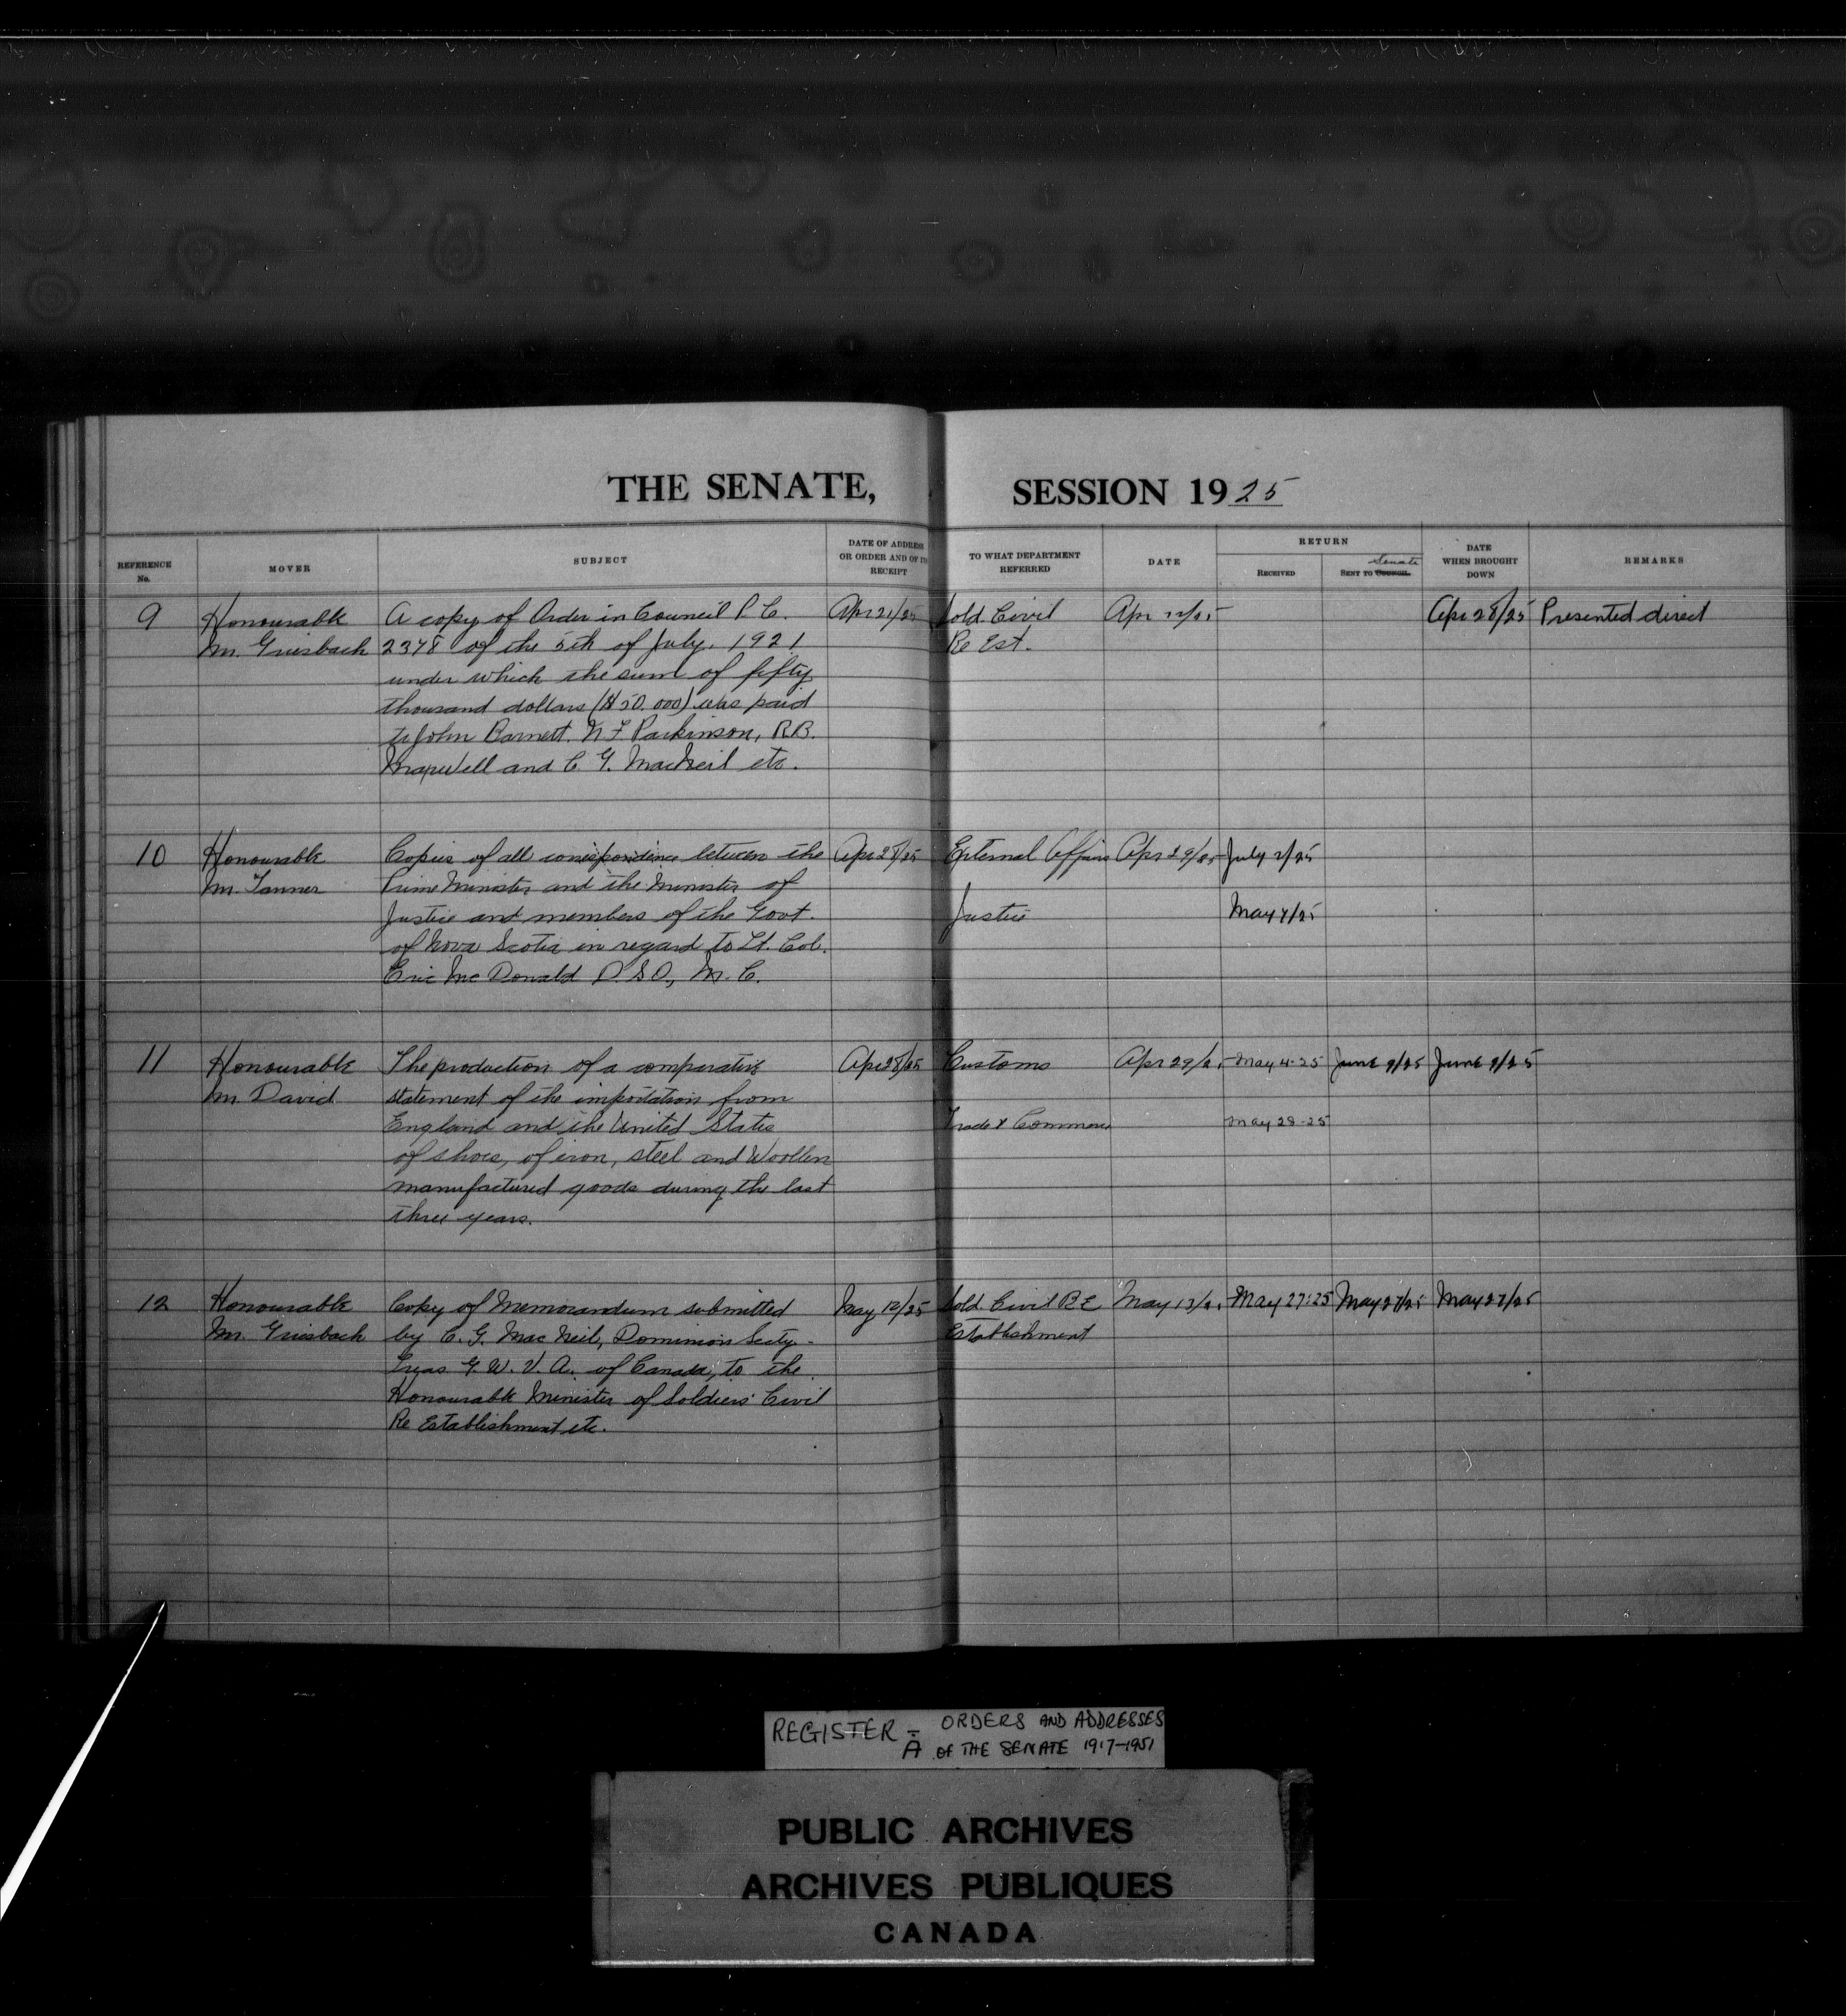 THE SENATE, SESSION 1925
REFERENCE No.
MOVER
SUBJECT
DATE OF ADDRESS OR ORDER AND OF ITS RECEIPT
TO WHAT DEPARTMENT REFERRED
DATE
RETURN
RECEIVED
SENT TO COUNCIL Senate
DATE WHEN BROUGHT DOWN
REMARKS
9
Honourable
Mr. Griesbach
A copy of Order in Council P. C.
2378 of the 5th of July. 1921
under which the sum of fifty
thousand dollars ($50.000) was paid
to John Barnett. N F Parkinson, R.B.
Maxwell and C. G. MacNeil etc.
Apr 21/25
Sold. Civil
Re Est.
Apr 22/25
Apr 28/25
Presented direct
10
Honourable
Mr. Tanner
Copies of all correspondence between the
Prime Minister and the Minister of
Justice and members of the Govt.
of Nova Scotia in regard to Lt. Col.
Eric McDonald D.S.O., M.C.
Apr 28/25
External Affairs
Apr 29/25
July 2/25
Justice
May 7/25
11
Honourable
Mr. David
The production of a comparative
statement of the importation from
England and the United States
of shoes, of iron, steel and Woollen
manufactured goods during the last
three years.
Apr 28/25
Customs
Apr 29/25
May 4-25
June 9/25
June 9/25
Trade & Commerce
May 28-25
12
Honourable
Mr. Griesbach
Copy of Memorandum submitted
by C. G. MacNeil, Dominion Secty-
Treas G. W. V. A. of Canada, to the
Honourable Minister of Soldiers' Civil
Re Establishment etc.
May 12/25
Sold. Civil R E
Establishment
May 13/25
May 27:25
May 27/25
May 27/25
REGISTER - ORDERS AND ADDRESSES
A OF THE SENATE 1917-1951
PUBLIC ARCHIVES
ARCHIVES PUBLIQUES
CANADA